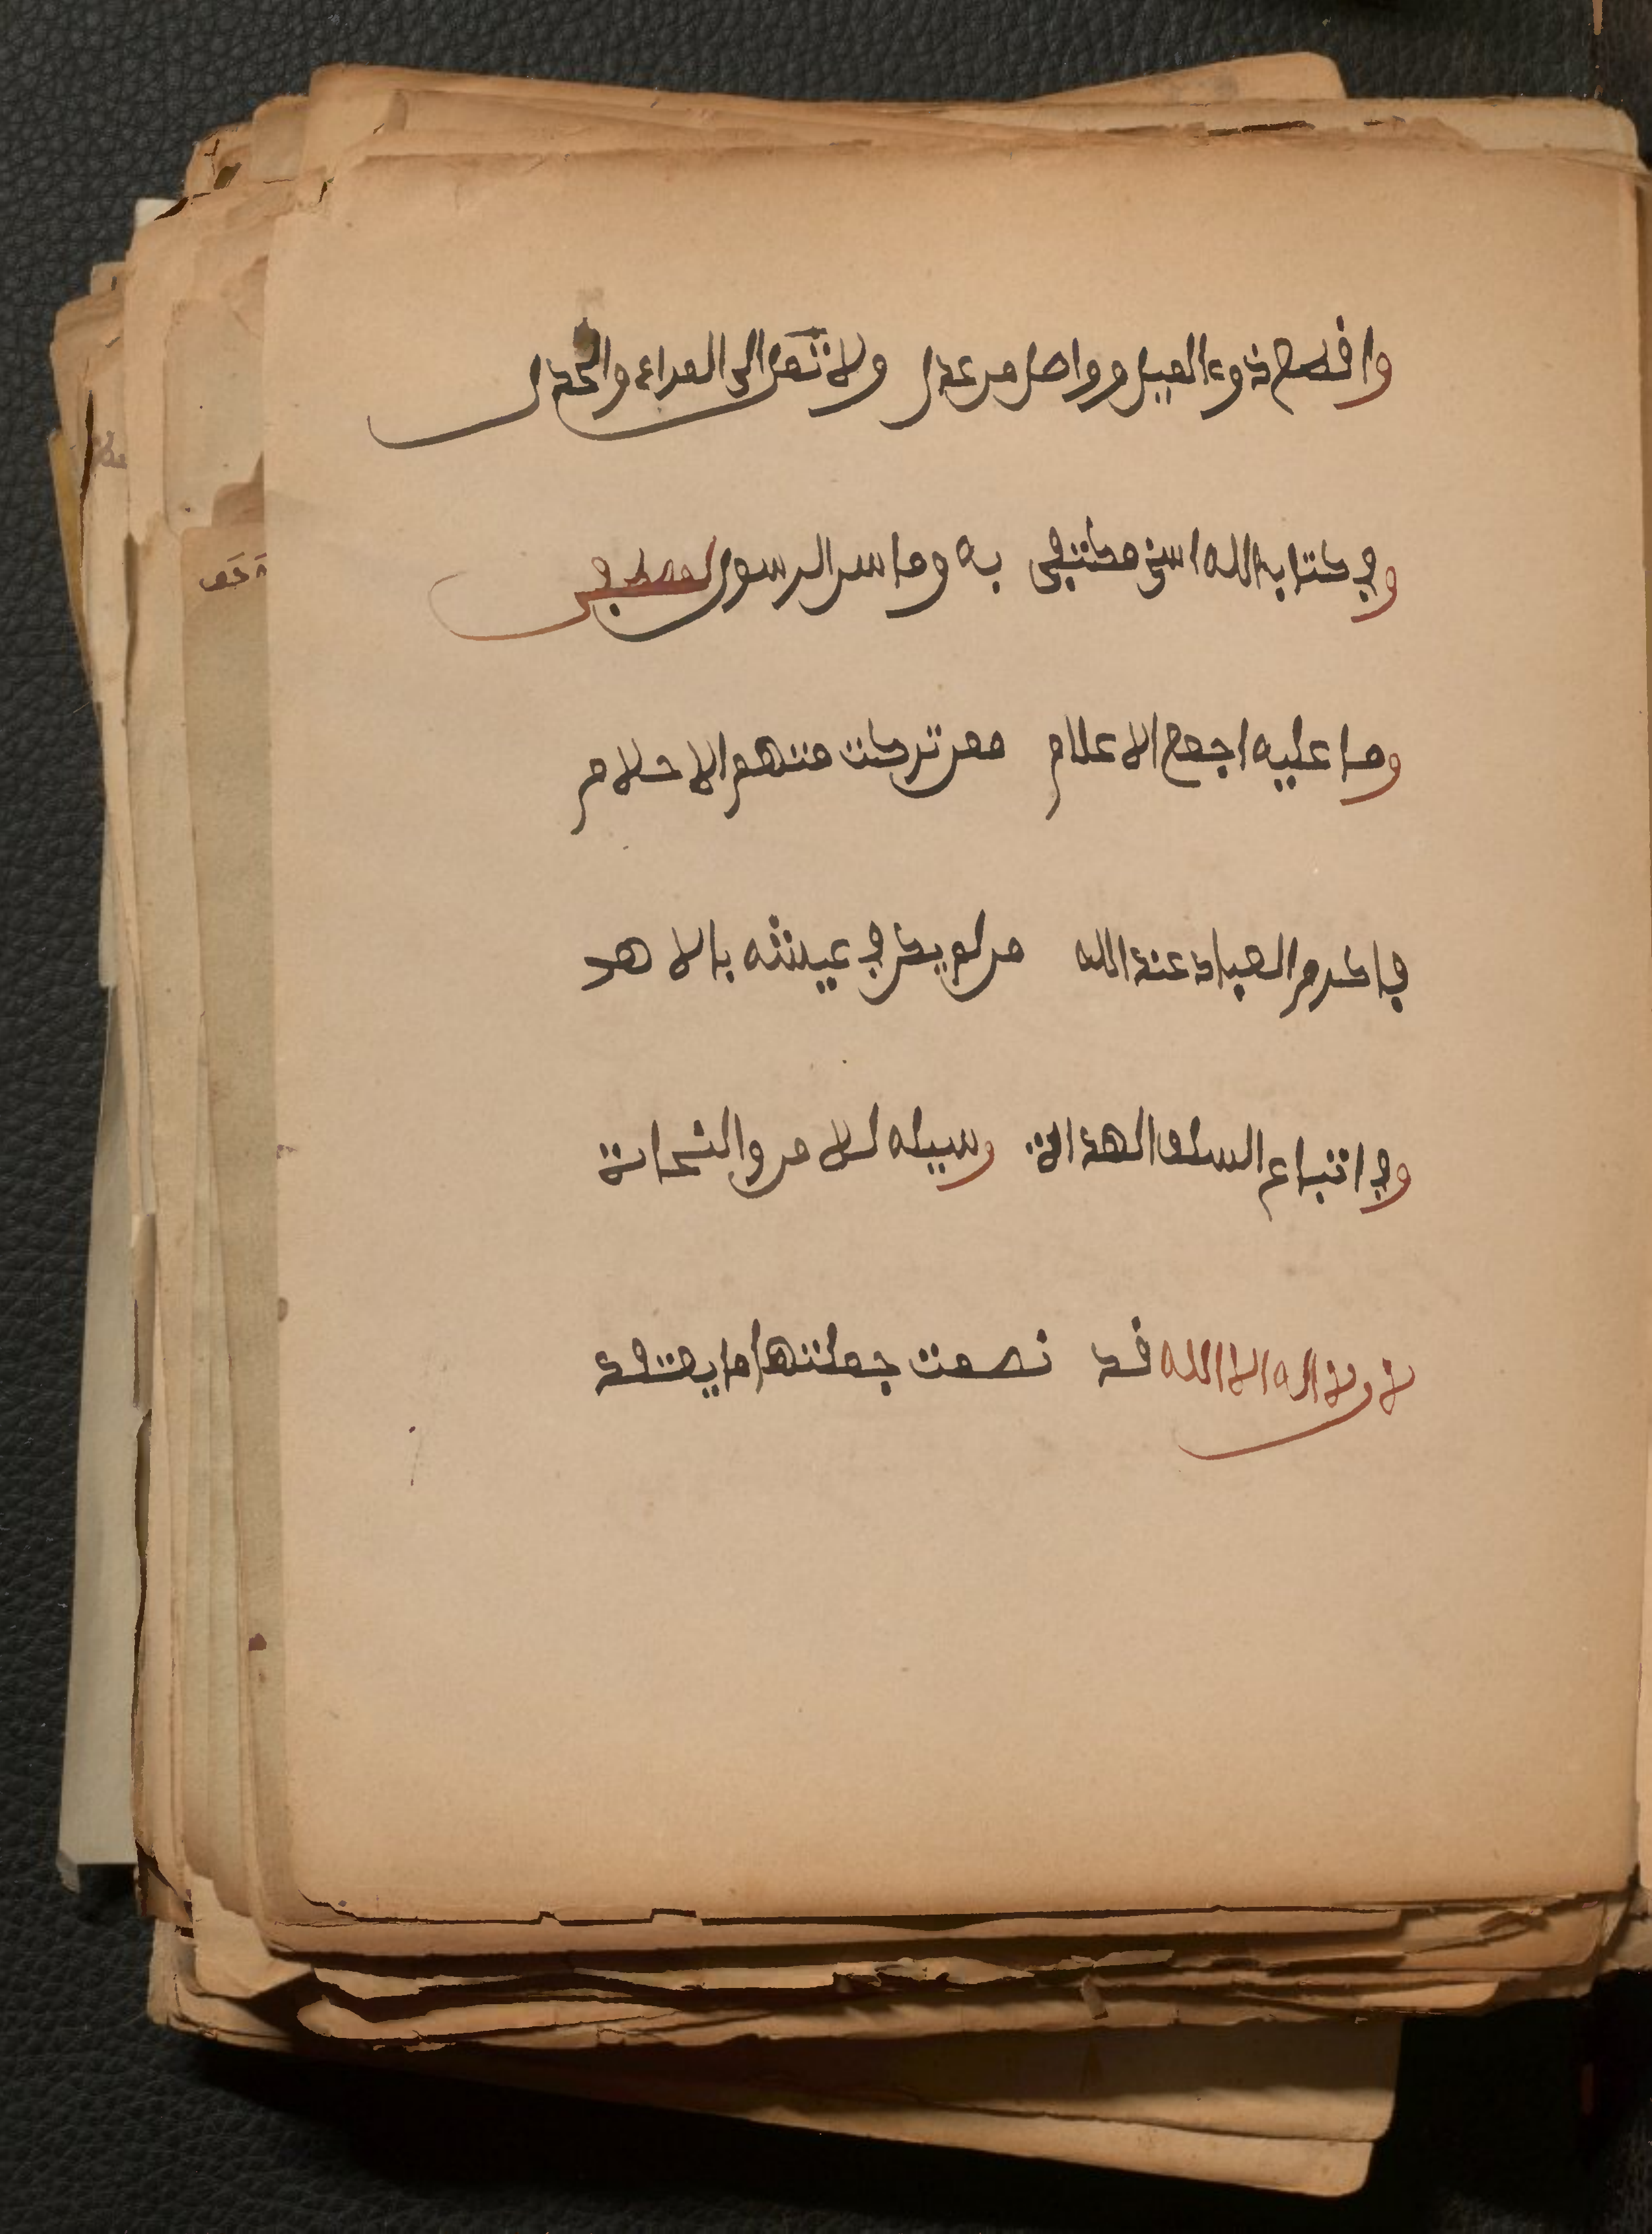 وافصح ذوء الميل وواصل من عدل ولا تمل الى المراء والجدل
وفي كتاب الله اسنى مكتفى به وما سن الرسول المصطفى
وما عليه اجمع الاعلام ممن تركت منهم الاحلام
فاكرم العباد عند الله من لم يكن في عينته بالاهد
وفي اتباع السلف الهداة وسيله للامن والنجات
لا ولا اله الا الله قد نصمت جملتها ما يعتقد